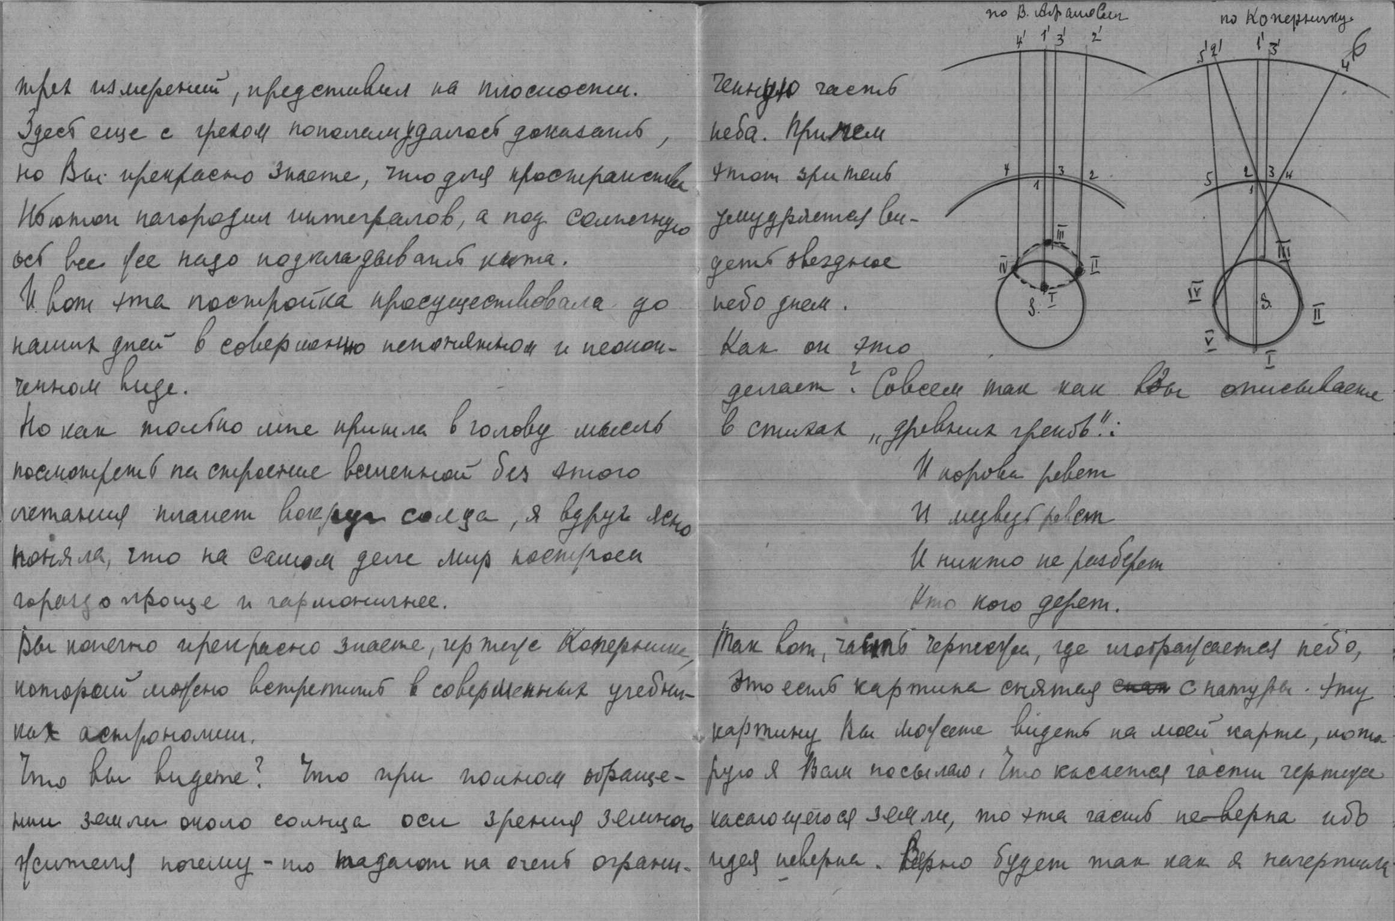 трех измерений, представил на плоскости.
Здесь еще с грехом пополам удалось доказать,
но Вы прекрасно знаете, что для пространства
Ньютон нагородил интегралов, а под солнечную
ось все же надо подкладывать кита.
И вот эта постройка просуществовала до
наших дней в совершенно непонятном и неокон-
ченном виде.
Но как только мне пришла в голову мысль
посмотреть на строение вселенной без этого
летания планет вокруг солца, я вдруг ясно
поняла, что на самом деле мир построен
гораздо проще и гармоничнее.
Вы конечно прекрасно знаете, чертеж Коперника,
который можно встретить в современных учебни-
ках астрономии.
Что вы видете? Что при полном обраще-
нии земли около солнца оси зрения земного
жителя почему-то падают на очень ограни-
по В. Абрамович
4' 1' 3' 2'
4 1 3 2
IV III II
S. I
по Копернику
6
5' 2' 1' 3' 4'
5 2 1 3 4
IV III
S. II
V I
ченную часть
неба. Причем
этот зритель
умудряется ви-
деть звездное
небо днем.
Как он это
делает? Совсем так как Вы описываете
в стихах „древних греков":
И корова ревет
И медведь ревет
И никто не разберет
Кто кого дерет.
Так вот, часть чертежа, где изображается небо,
Это есть картина снятая с натуры. Эту
картину Вы можете видеть на моей карте, кото-
рую я Вам посылаю. Что касается части чертежа
касающегося земли, то эта часть не верна ибо
идея неверна. Верно будет так как я начертила